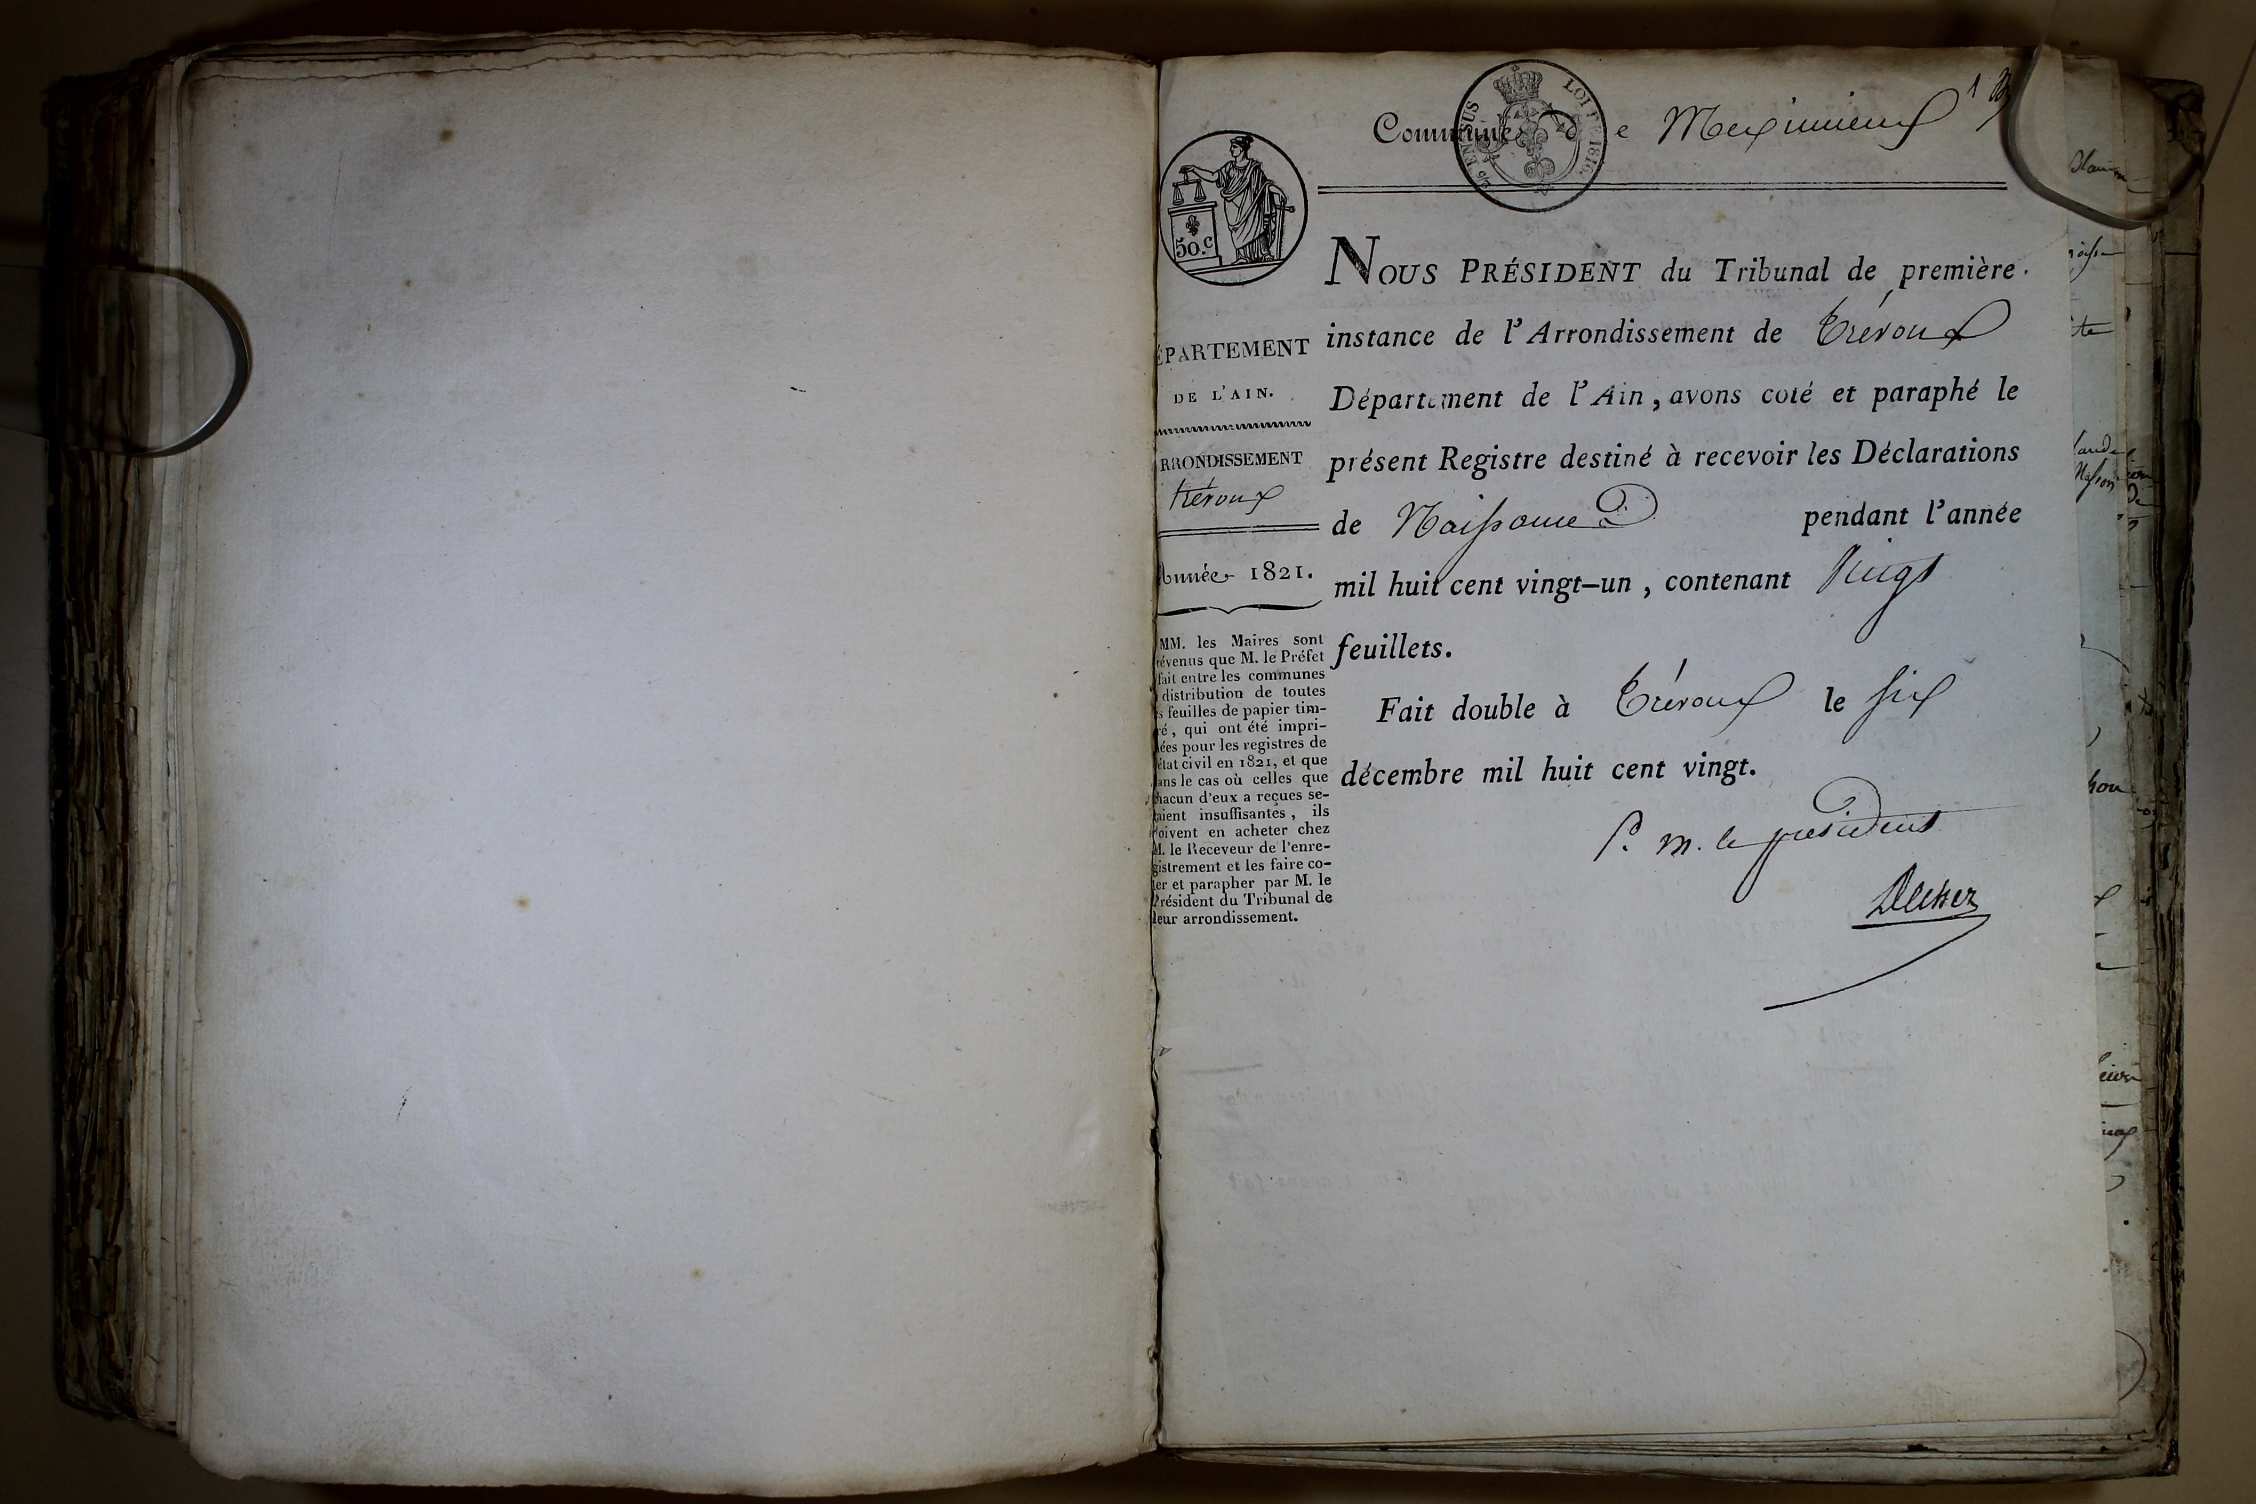 Commune de Meximieux
1
LOI DE 1816.
50.c
NOUS PRÉSIDENT du Tribunal de première
instance de l'Arrondissement de Trévoux
Département de l'Ain, avons coté et paraphé le
présent Registre destiné à recevoir les Déclarations
de Naissance pendant l'année
mil huit cent vingt-un, contenant Vingt
feuillets.
Fait double à Trévoux le six
décembre mil huit cent vingt.
P. m. le président
ÉPARTEMENT
DE L'AIN.
RRONDISSEMENT
trévoux
Année 1821.
MM. les Maires sont
révenus que M. le Préfet
fait entre les communes
distribution de toutes
s feuilles de papier tim-
ré, qui ont été impri-
ées pour les registres de
état civil en 1821, et que
ans le cas où celles que
hacun d'eux a reçues se-
aient insuffisantes, ils
oivent en acheter chez
M. le Receveur de l'enre-
gistrement et les faire co-
ter et parapher par M. le
Président du Tribunal de
leur arrondissement.